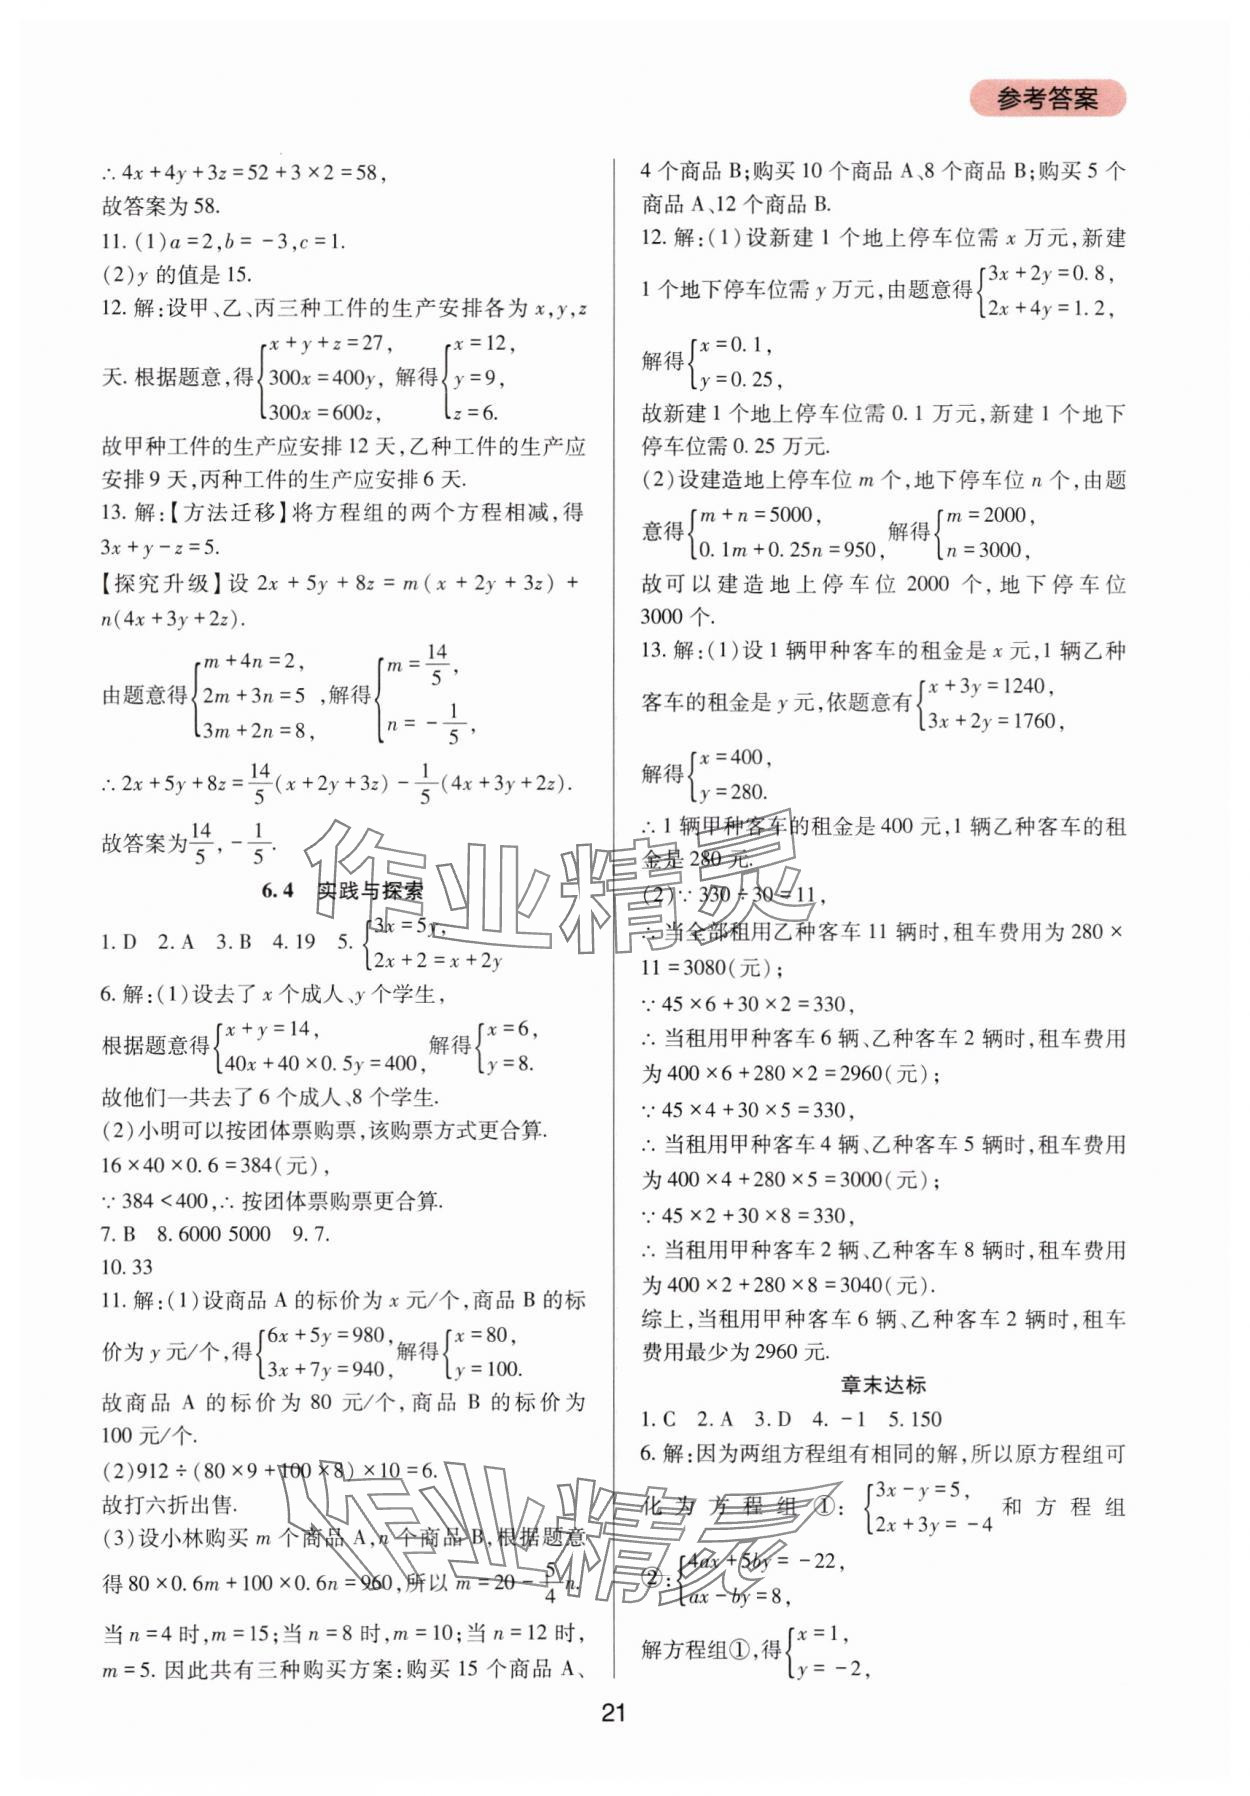 参考答案
∴4x+4y+3z=52+3×2=58,
故答案为58.
11. (1)a=2,b=-3,c=1.
(2)y的值是15.
12. 解:设甲、乙、丙三种工件的生产安排各为x,y,z
天. 根据题意,得{x+y+z=27, 300x=400y, 300x=600z, 解得{x=12, y=9, z=6.
故甲种工件的生产应安排12天,乙种工件的生产应
安排9天,丙种工件的生产应安排6天.
13. 解:【方法迁移】将方程组的两个方程相减,得
3x+y-z=5.
【探究升级】设 2x+5y+8z=m(x+2y+3z)+
n(4x+3y+2z).
由题意得{m+4n=2, 2m+3n=5 3m+2n=8, ,解得{m=14/5, n=-1/5,
∴2x+5y+8z=14/5(x+2y+3z)-1/5(4x+3y+2z).
故答案为14/5,-1/5.
6.4 实践与探索
1. D 2. A 3. B 4. 19 5. {3x=5y, 2x+2=x+2y
6. 解:(1)设去了x个成人、y个学生,
根据题意得{x+y=14, 40x+40×0.5y=400, 解得{x=6, y=8.
故他们一共去了6个成人、8个学生.
(2)小明可以按团体票购票,该购票方式更合算.
16×40×0.6=384(元),
∵384<400,∴按团体票购票更合算.
7. B 8. 6000 5000 9. 7.
10. 33
11. 解:(1)设商品A的标价为x元/个,商品B的标
价为y元/个,得{6x+5y=980, 3x+7y=940, 解得{x=80, y=100.
故商品A的标价为80元/个,商品B的标价为
100元/个.
(2)912÷(80×9+100×8)×10=6.
故打六折出售.
(3)设小林购买m个商品A,n个商品B,根据题意
得80×0.6m+100×0.6n=960,所以m=20-5/4n.
当n=4时,m=15;当n=8时,m=10;当n=12时,
m=5. 因此共有三种购买方案:购买15个商品A、
4个商品B;购买10个商品A、8个商品B;购买5个
商品A、12个商品B.
12. 解:(1)设新建1个地上停车位需x万元,新建
1个地下停车位需y万元,由题意得{3x+2y=0.8, 2x+4y=1.2,
解得{x=0.1, y=0.25,
故新建1个地上停车位需0.1万元,新建1个地下
停车位需0.25万元.
(2)设建造地上停车位m个,地下停车位n个,由题
意得{m+n=5000, 0.1m+0.25n=950, 解得{m=2000, n=3000,
故可以建造地上停车位2000个,地下停车位
3000个.
13. 解:(1)设1辆甲种客车的租金是x元,1辆乙种
客车的租金是y元,依题意有{x+3y=1240, 3x+2y=1760,
解得{x=400, y=280.
∴1辆甲种客车的租金是400元,1辆乙种客车的租
金是280元.
(2)∵330÷30=11,
∴当全部租用乙种客车11辆时,租车费用为280×
11=3080(元);
∵45×6+30×2=330,
∴当租用甲种客车6辆、乙种客车2辆时,租车费用
为400×6+280×2=2960(元);
∵45×4+30×5=330,
∴当租用甲种客车4辆、乙种客车5辆时,租车费用
为400×4+280×5=3000(元);
∵45×2+30×8=330,
∴当租用甲种客车2辆、乙种客车8辆时,租车费用
为400×2+280×8=3040(元).
综上,当租用甲种客车6辆、乙种客车2辆时,租车
费用最少为2960元.
章末达标
1. C 2. A 3. D 4. -1 5. 150
6. 解:因为两组方程组有相同的解,所以原方程组可
化为方程组①:{3x-y=5, 2x+3y=-4 和方程组
②:{4ax+5by=-22, ax-by=8,
解方程组①,得{x=1, y=-2,
21
作业精灵
作业精灵